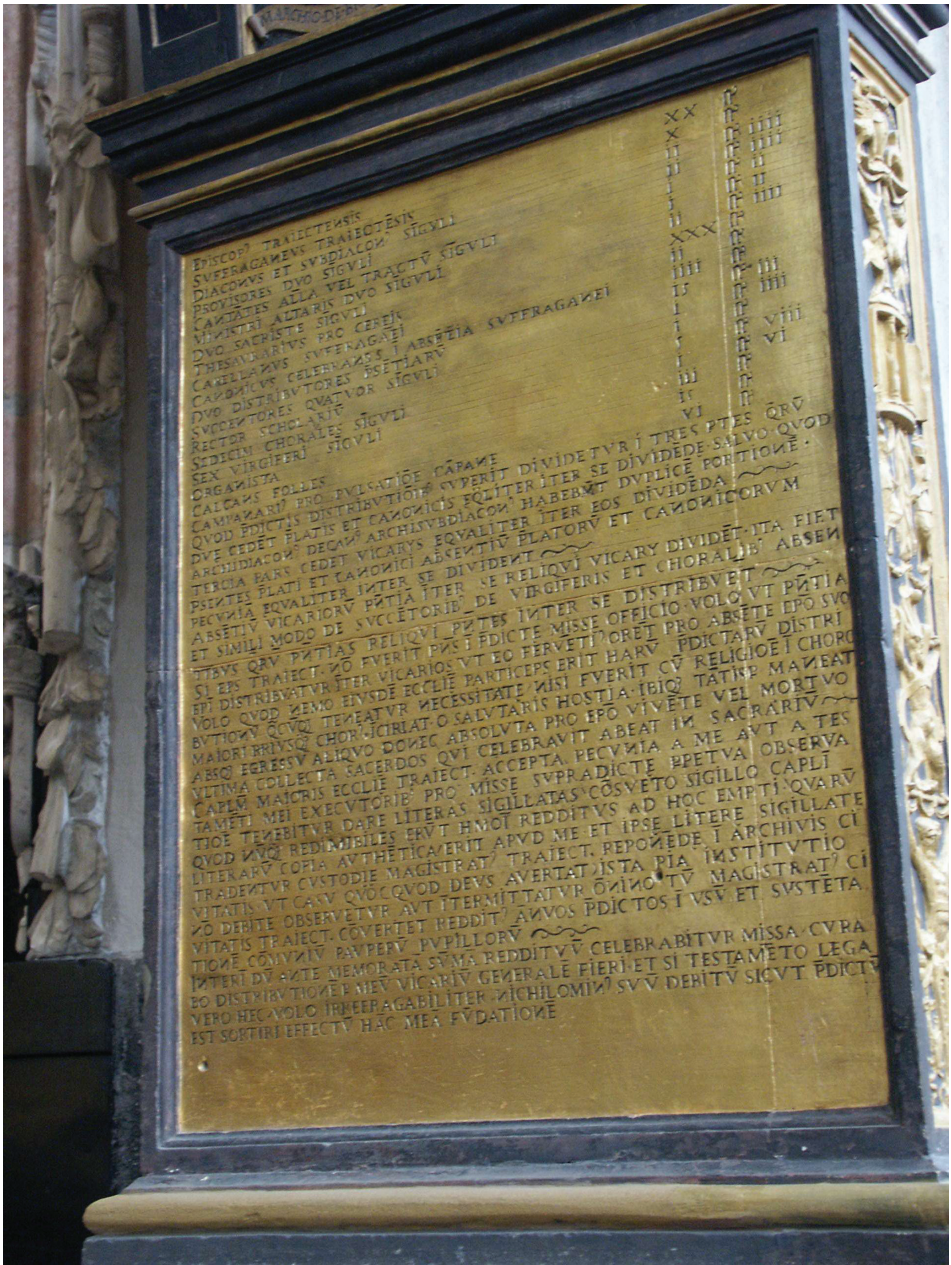 MARCHIO DE
EPISCOPꝰ TRAIECTENSIS XX
SVFFRAGANEVS TRAIECTĒSIS X
DIACONVS ET SVBDIACONꝰ SĪGVLI
PROVISORES DVO SĪGVLI
CANTĀTES ALLA VEL TRACTV̄ SĪGVLI
MINISTRI ALTARIS DVO SĪGVLI
DVO SACRISTE SĪGVLI
THESAVRARIVS PRO CEREIS
CAPELLANVS SVFFRAGAЄI
CANONICVS CELEBRANS Ī ABSĒTIA SVFFRAGANEI
DVO DISTRIBVTORES P̄SĒTIARV̄
SVCCENTORES QVATVOR SĪGVLI
RECTOR SCHOLARIV̄
SEDECIM CHORALES SĪGVLI
SEX VIRGIFERI SĪGVLI
ORGANISTA
CALCANS FOLLES
CAMPANARIꝰ PRO PVLSATIŌE CĀPANE
QVOD P̄DICTIS DISTRIBVTIŌIBꝰ SVPERIT DIVIDETVR Ī TRES P̄TES QR̄V̄
DVE CEDĒT P̄LATIS ET CANONICIS EQLITER ĪTER SE DIVIDĒDE SALVO QVOD
ARCHIDIACONꝰ DECANꝰ ARCHISVBDIACONꝰ HABEBV̄T DVPLICĒ PORTIONĒ.
TERCIA PARS CEDET VICARYS EQVALITER ĪTER EOS DIVIDĒDA
PSENTES PLATI ET CANONICI ABSENTIV̄ PLATORV̄ ET CANONICORVM
PECVNIĀ EQVALITER INTER SE DIVIDENT
ABSĒTIV̄ VICARIORV̄ PN̄TIĀ ĪTER SE RELIQVI VICARY DIVIDĒT. ITA FIET
ET SIMILI MODO DE SVCCĒTORIBꝰ DE VIRGIFERIS ET CHORALIBꝰ ABSEN
TIBVS QRV̄ PN̄TIAS RELIQVI PN̄TES INTER SE DISTRIBVET
SI EPS TRAIECT. NŌ FVERIT PN̄S Ī P̄DICTE MISSE OFFICIO. VOLO VT PN̄TIA
EPĪ DISTRIBVATVR ĪTER VICARIOS VT EO FERVĒTIꝰ ORĒT PRO ABSĒTE EPŌ SVO
VOLO QVOD NEMO EIVSDĒ ECCLIĒ PARTICEPS ERIT HARV̄ P̄DICTARV̄ DISTRI
BVTIONV̄ QCVQ TENEATVR NECESSITATE NISI FVERIT CV̄ RELIGIOĒ Ī CHORO
MAIORI PRIVSQ̄ CHORꝰ ĪCIPIAT O SALVTARIS HOSTIA. IBIQꝫ TATISP̄ MANEAT
ABSQꝫ EGRESSV ALIQVO DONEC ABSOLVTA PRO EPŌ VIVĒTE VEL MORTVO
VLTIMA COLLECTA SACERDOS QVI CELEBRAVIT ABEAT IN SACRARIV̄
CAPLM MAIORIS ECCLIĒ TRAIECT. ACCEPTA PECVNIA A ME AVT A TES
TAMĒTI MEI EXECVTORIBꝰ PRO MISSE SVPRADICTE P̄PETVA OBSERVA
TIOĒ TENEBITVR DARE LITERAS SIGILLATAS CŌSVETO SIGILLO CAPLĪ
QVOD NV̄Q̄ REDIMIBILES ERV̄T HMŌI REDDITVS AD HOC EMPTI. QVARV̄
LITERARV̄ COPIA AVTHĒTICA ERIT APVD ME ET IPSE LITERE SIGILLATE
TRADENTVR CVSTODIE MAGISTRATꝰ TRAIECT. REPONĒDE Ī ARCHIVIS CI
VITATIS. VT CASV QVOCQVOD DEVS AVERTAT ISTA PIA INSTITVTIO
NŌ DEBITE OBSERVETVR AVT ĪTERMITTATVR ŌNINO TV̄ MAGISTRATꝰ CI
VITATIS TRAIECT. CŌVERTET REDDITꝰ ĀNVOS P̄DICTOS Ī VSV̄ ET SVSTĒTA
TIONĒ CŌMVNIV̄ PAVPERV̄ PVPILLORV̄
INTERI DV̄ ANTE MEMORATĀ SV̄MĀ REDDITVV̄ CELEBRABITVR MISSA. CVRA
BO DISTRIBVTIONĒ P MEV̄ VICARIV̄ GENERALĒ FIERI ET SI TESTAMĒTO LEGA
VERO HEC. VOLO IRREFRAGABILITER. NICHILOMINꝰ SVV̄ DEBITV̄ SICVT P̄DICTV̄
EST SORTIRI EFFECTV̄ HĀC MEĀ FV̄DATIONĒ